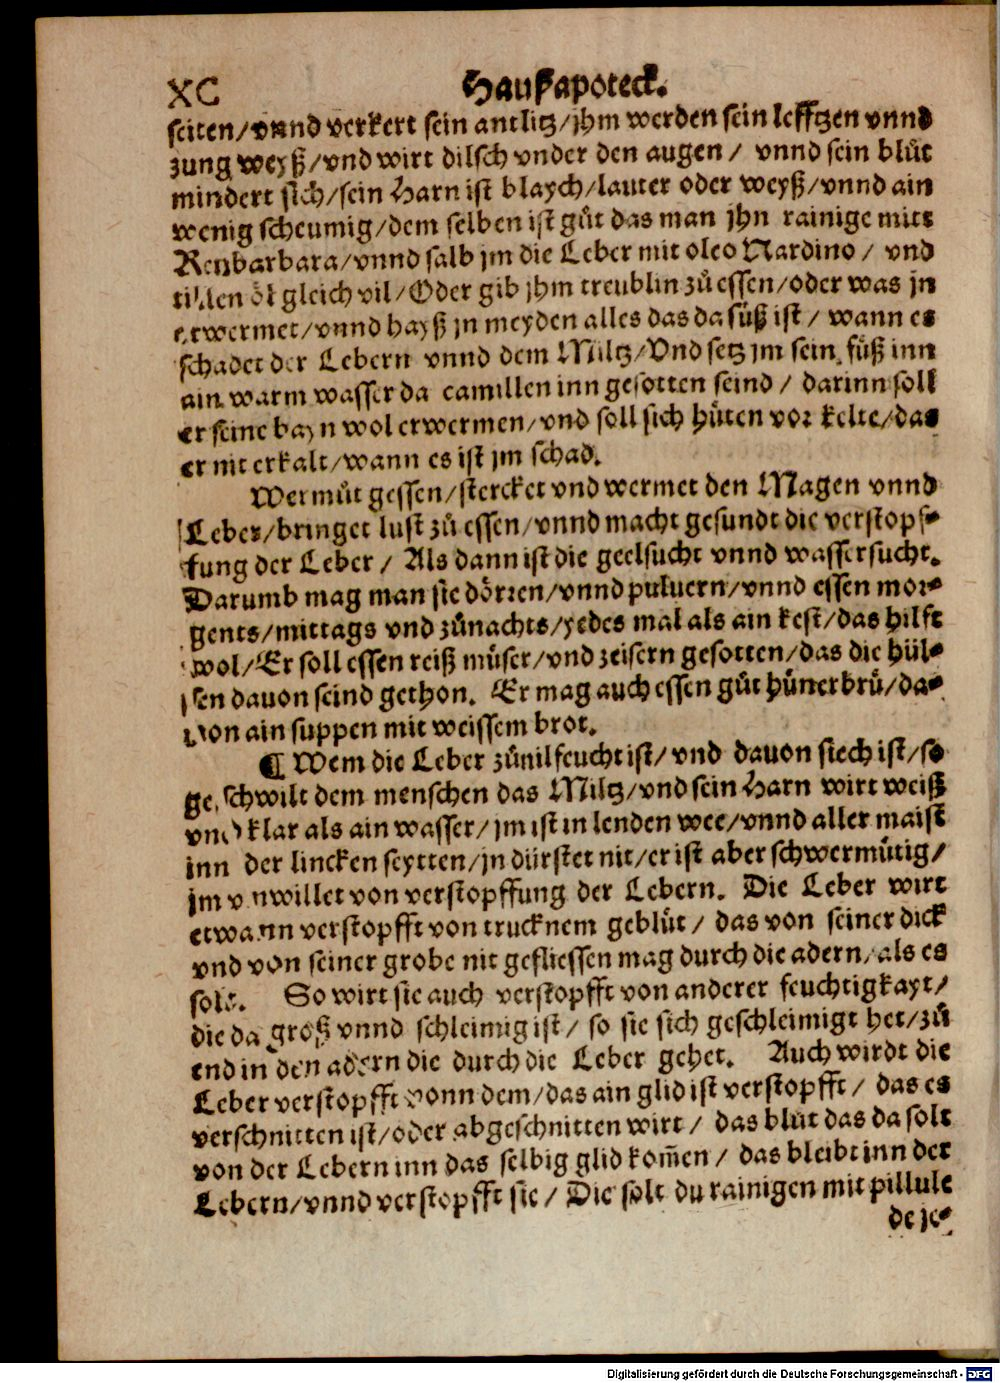 XC Haußapoteck.
seiten/vnnd verkert sein antlitz/jhm werden sein lefftzen vnnd
zung weyß/vnd wirt dilsch vnder den augen/ vnnd sein blůt
mindert sich/sein Harn ist blaych/lauter oder weyß/vnnd ain
wenig scheumig/dem selben ist gůt das man jhn rainige mitt
Reubarbara/vnnd salb jm die Leber mit oleo Nardino/ vnd
tillen öl gleich vil/Oder gib jhm treublin zů essen/oder was jn
erwermet/vnnd hayß jn meyden alles das da süß ist/ wann es
schadet der Lebern vnnd dem Miltz/Vnd setz jm sein füß inn
ain warm wasser da camillen inn gesotten seind/ darinn soll
er seine bayn wol erwermen/vnd soll sich hüten vor kelte/das
er nit erkalt/wann es ist jm schad.
Wermůt gessen/stercket vnd wermet den Magen vnnd
Leber/bringet lust zů essen/vnnd macht gesundt die verstopf-
fung der Leber/ Als dann ist die geelsucht vnnd wassersucht.
Darumb mag man sie dörren/vnnd puluern/vnnd essen mor-
gents/mittags vnd zůnachts/yedes mal als ain kest/das hilft
wol/Er soll essen reiß můser/vnd zeisern gesotten/das die hül-
sen dauon seind gethon. Er mag auch essen gůt hünerbrü/da-
von ain suppen mit weissem brot.
¶ Wem die Leber zůuil feucht ist/ vnd dauon siech ist/so
geschwilt dem menschen das Miltz/vnd sein Harn wirt weiß
vnd klar als ain wasser/jm ist in lenden wee/vnnd aller maist
inn der lincken seytten/jn dürstet nit/er ist aber schwermütig/
jm vnwillet von verstopffung der Lebern. Die Leber wirt
etwann verstopfft von trucknem geblüt/ das von seiner dick
vnd von seiner grobe nit gefliessen mag durch die adern/als es
solt. So wirt sie auch verstopfft von anderer feuchtigkayt/
die da groß vnnd schleimig ist/ so sie sich geschleimigt het/zů
end in den adern die durch die Leber gehet. Auch wirdt die
Leber verstopfft vonn dem/das ain glid ist verstopfft/ das es
verschnitten ist/oder abgeschnitten wirt/ das blůt das da solt
von der Lebern inn das selbig glid kom̃en/ das bleibt inn der
Lebern/vnnd verstopfft sie/ Die solt du rainigen mit pillule
de je-
Digitalisierung gefördert durch die Deutsche Forschungsgemeinschaft - DFG